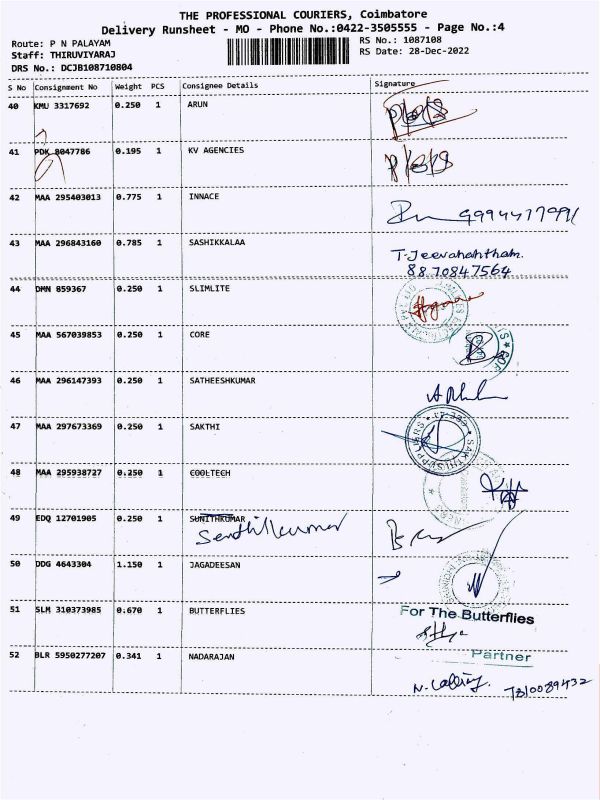 THE PROFESSIONAL COURIERS, Coimbatore
Delivery Runsheet - MO - Phone No.:0422-3505555 - Page No.:4
Route: P N PALAYAM
RS No.: 1087108
Staff: THIRUVIYARAJ
RS Date: 28-Dec-2022
DRS No.: DCJB108710804
S No Consignment No Weight PCS Consignee Details Signature
40 KMU 3317692 0.250 1 ARUN
41 PDK 8047786 0.195 1 KV AGENCIES
42 MAA 295403013 0.775 1 INNACE
43 MAA 296843160 0.785 1 SASHIKKALAA
T. Jeevahahtham.
8870847564
44 DMN 859367 0.250 1 SLIMLITE
45 MAA 567039853 0.250 1 CORE
46 MAA 296147393 0.250 1 SATHEESHKUMAR
47 MAA 297673369 0.250 1 SAKTHI
48 MAA 295938727 0.250 1 COOLTECH
49 EDQ 12701905 0.250 1 SUNITHKUMAR
Senthilkumar
50 DDG 4643304 1.150 1 JAGADEESAN
51 SLM 310373985 0.670 1 BUTTERFLIES
For The Butterflies
Partner
52 BLR 5950277207 0.341 1 NADARAJAN
7810089432